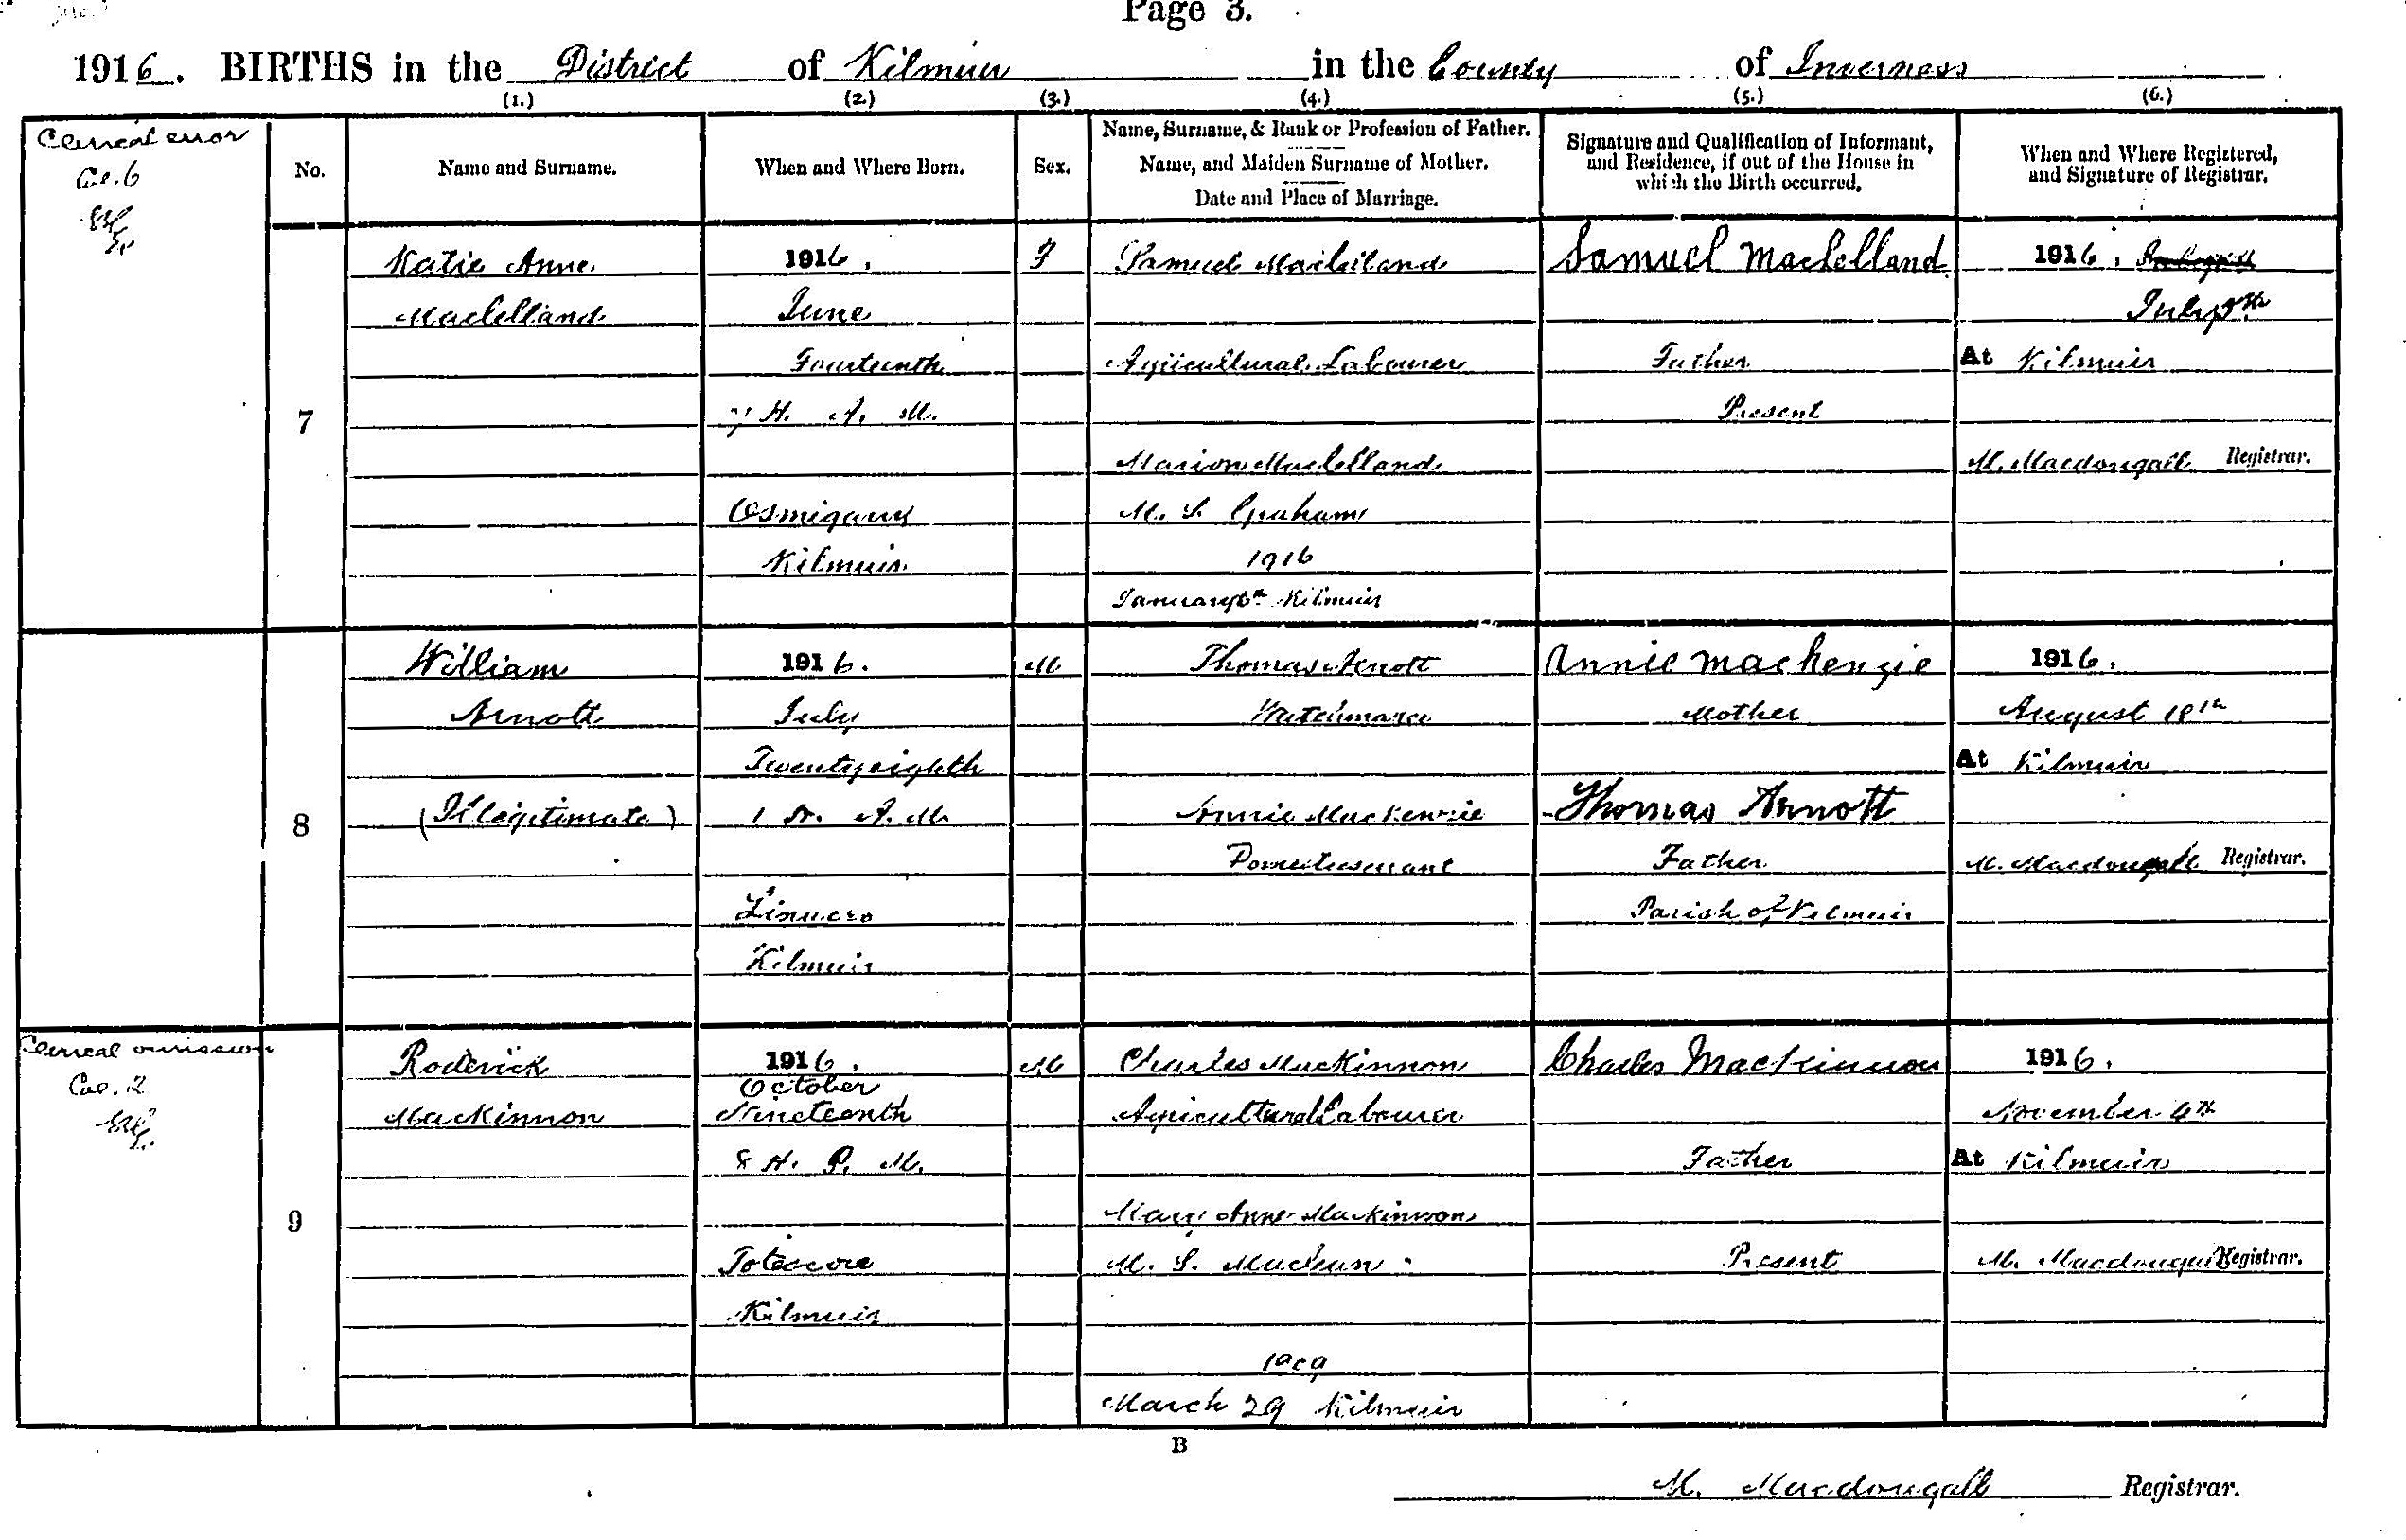 Page 3.
1916. BIRTHS in the District of Kilmuir in the County of Inverness
(1.) (2.) (3.) (4.) (5.) (6.)
Clerical error
Col. 6
No.
Name and Surname.
When and Where Born.
Sex.
Name, Surname, & Rank or Profession of Father.
Name, and Maiden Surname of Mother.
Date and Place of Marriage.
Signature and Qualification of Informant,
and Residence, if out of the House in
which the Birth occurred.
When and Where Registered,
and Signature of Registrar.
7
Katie Anne
Maclelland
1916.
June
Fourteenth
7 H. A. M.
Kilmuir
F
Samuel Maclelland
Agricultural Labourer
Marion Maclelland
M. S. Graham
1916
January 6th Kilmuir
Samuel Maclelland
Father
Present
1916.
July
At Kilmuir
M. Macdougall Registrar.
8
William
Arnott
(Illegitimate)
1916.
July
Twenty eighth
1 H. A. M.
Linicro
Kilmuir
M
Thomas Arnott
Watchmaker
Annie MacKenzie
Domestic servant
Annie Mackenzie
Mother
Thomas Arnott
Father
Parish of Kilmuir
1916.
August 18th
At Kilmuir
M. Macdougall Registrar.
Clerical omission
Col. 2
9
Roderick
MacKinnon
1916.
October
Nineteenth
8 H. P. M.
Totescore
Kilmuir
M
Charles MacKinnon
Agricultural Labourer
Mary Anne MacKinnon
M. S. Maclean
1909
March 29 Kilmuir
Charles MacKinnon
Father
Present
1916.
November 4th
At Kilmuir
M. Macdougall Registrar.
B
M. Macdougall Registrar.